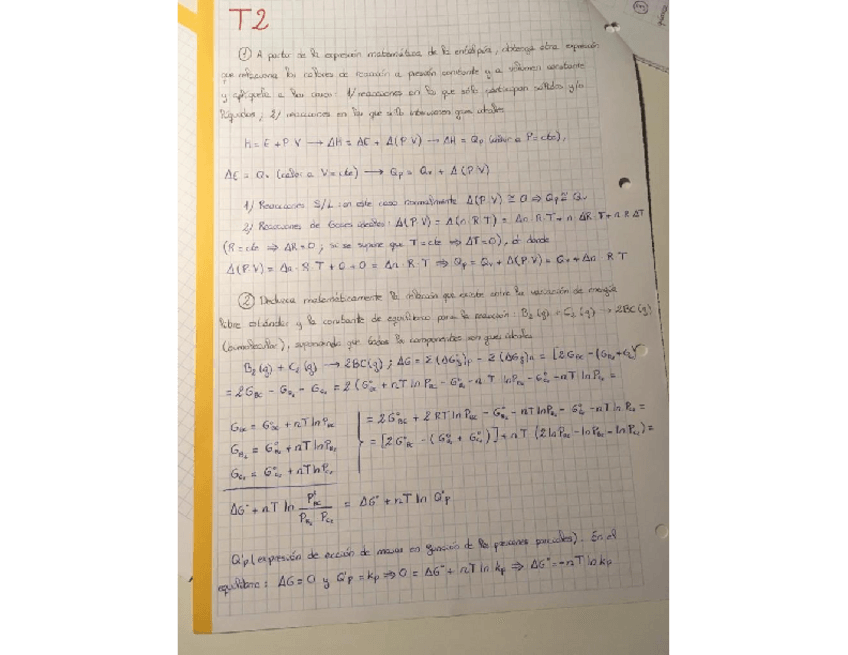 T2
① A partir de la expresión matemática de la entalpía, obtenga otra expresión
que relacione los calores de reacción a presión constante y a volumen constante
y aplíquela a los casos: 1/ reacciones en las que sólo participan sólidos y/o
líquidos; 2/ reacciones en las que sólo intervienen gases ideales
H = E + P·V → ΔH = ΔE + Δ(P·V) → ΔH = Qp (calor a P=cte),
ΔE = Qv (calor a V=cte) → Qp = Qv + Δ(P·V)
1/ Reacciones S/L: en este caso normalmente Δ(P·V) ≅ 0 ⇒ Qp ≅ Qv
2/ Reacciones de Gases ideales: Δ(P·V) = Δ(n·R·T) = Δn·R·T + n·ΔR·T + n·R·ΔT
(R = cte ⇒ ΔR = 0; si se supone que T = cte ⇒ ΔT = 0), de donde
Δ(P·V) = Δn·R·T + 0 + 0 = Δn·R·T ⇒ Qp = Qv + Δ(P·V) = Qv + Δn·R·T
② Deduzca matemáticamente la relación que existe entre la variación de energía
libre estándar y la constante de equilibrio para la reacción: B₂(g) + C₂(g) → 2BC(g)
suponiendo que todos los componentes son gases ideales
B₂(g) + C₂(g) → 2BC(g); ΔG =
= 2G_BC − G_B₂ − G_C₂ =
G_BC = G°_BC + RT ln P_BC
G_B₂ = G°_B₂ + RT ln P_B₂
G_C₂ = G°_C₂ + RT ln P_C₂
= 2G°_BC + 2RT ln P_BC − G°_B₂ − RT ln P_B₂ − G°_C₂ − RT ln P_C₂ =
= [2G°_BC − (G°_B₂ + G°_C₂)] + RT (2 ln P_BC − ln P_B₂ − ln P_C₂) =
ΔG° + RT ln P²_BC / P_B₂·P_C₂ = ΔG° + RT ln Q'p
Q'p (expresión de acción de masas en función de las presiones parciales). En el
equilibrio: ΔG = 0 y Q'p = kp ⇒ 0 = ΔG° + RT ln kp ⇒ ΔG° = −RT ln kp